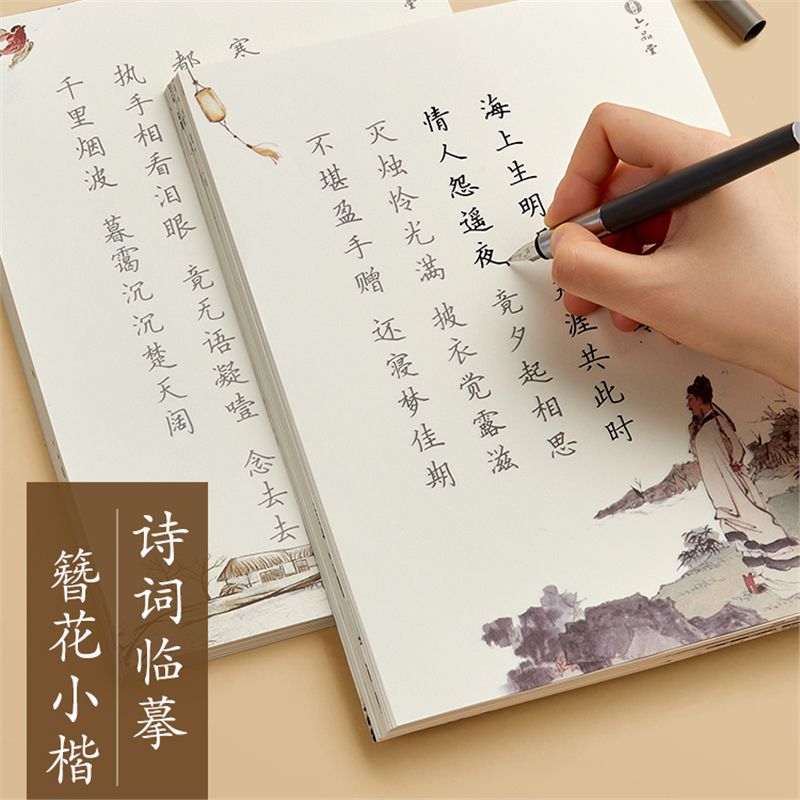 六品堂
海上生明
涯共此时
情人怨遥夜 竟夕起相思
灭烛怜光满 披衣觉露滋
不堪盈手赠 还寝梦佳期
寒
都
执手相看泪眼 竟无语凝噎 念去去
千里烟波 暮霭沉沉楚天阔
诗词临摹
簪花小楷